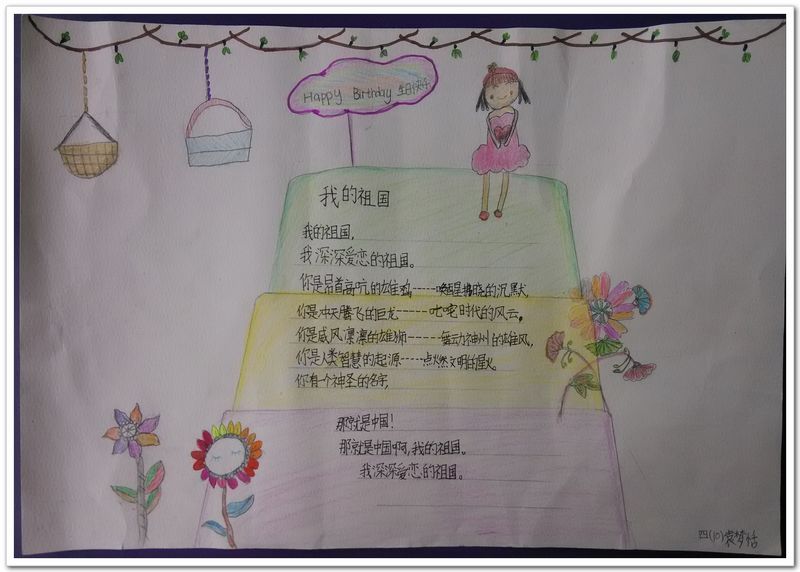 Happy Birthday 生日快乐
我的祖国
我的祖国,
我深深爱恋的祖国。
你是昂首高吭的雄鸡-----唤醒拂晓的沉默,
你是冲天腾飞的巨龙------叱咤时代的风云。
你是威风凛凛的雄狮------舞动神州的雄风,
你是人类智慧的起源-----点燃文明的星火。
你有一个神圣的名字,
那就是中国!
那就是中国啊,我的祖国。
我深深爱恋的祖国。
四(10)袁梦